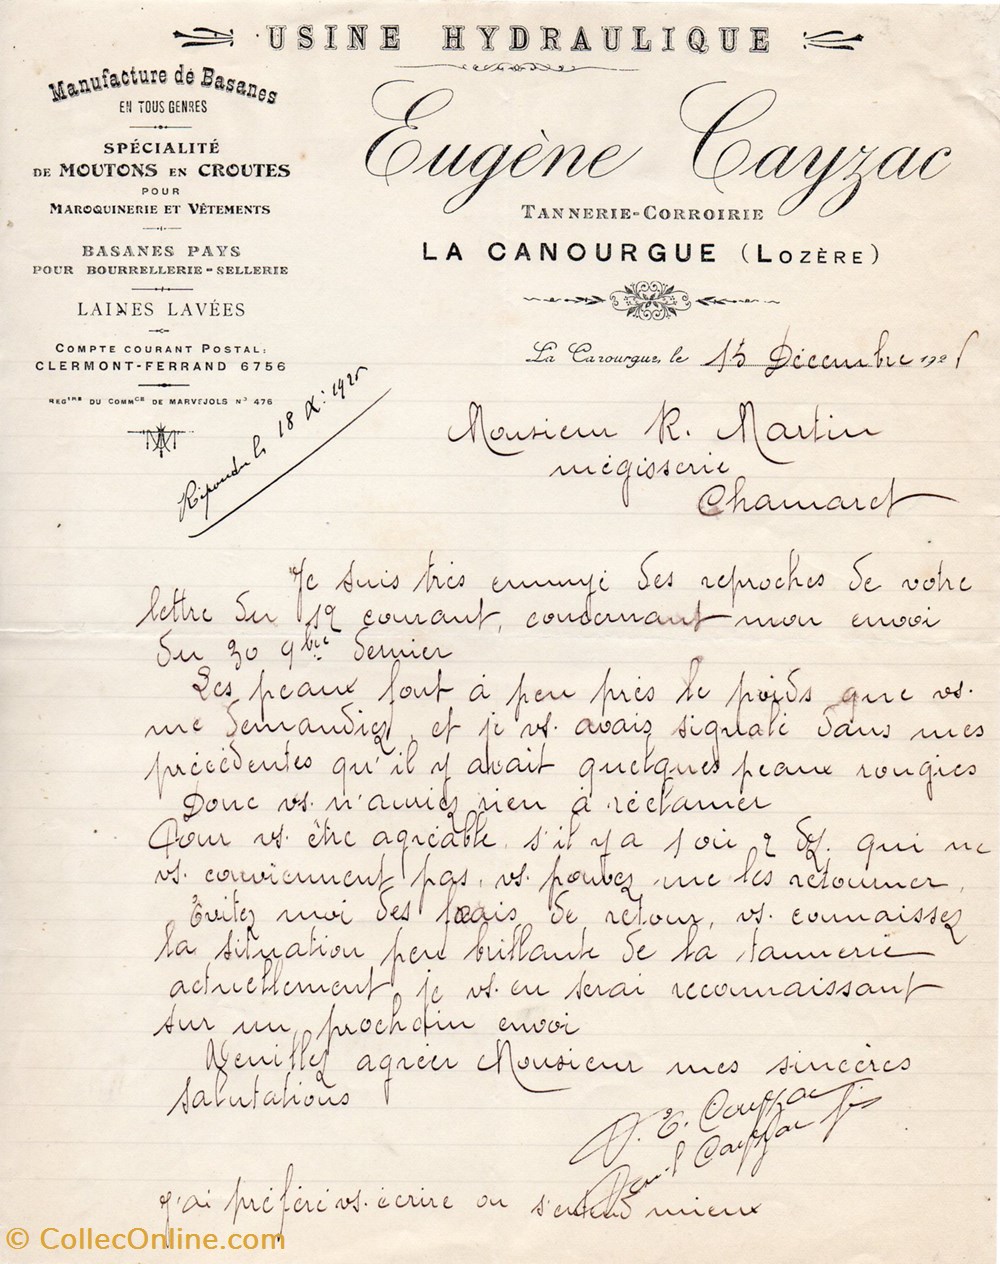 USINE HYDRAULIQUE
Manufacture de Basanes
EN TOUS GENRES
SPÉCIALITÉ
DE MOUTONS EN CROUTES
POUR
MAROQUINERIE ET VÊTEMENTS
BASANES PAYS
POUR BOURRELLERIE-SELLERIE
LAINES LAVÉES
COMPTE COURANT POSTAL:
CLERMONT-FERRAND 6756
REGTRE DU COMMCE DE MARVEJOLS No 476
Eugène Cayzac
TANNERIE-CORROIRIE
LA CANOURGUE (LOZÈRE)
La Canourgue, le 15 Décembre 192
Répondu le 18 X: 1925
Monsieur R. Martin
mégisserie
Chamaret
Je suis très ennuyé des reproches de votre
lettre du 12 courant, concernant mon envoi
du 30 9bre dernier
Les peaux font à peu près le poids que vs.
me demandiez, et je vs. avais signalé dans mes
précédentes qu'il y avait quelques peaux rougies
Donc vs. n'auriez rien à réclamer
Pour vs. être agréable, s'il y a 1 ou 2 dz. qui ne
vs. conviennent pas, vs. pouvez me les retourner,
Évitez moi des frais de retour, vs. connaissez
la situation peu brillante de la tannerie
actuellement, je vs. en serai reconnaissant
sur un prochain envoi
Veuillez agréer Monsieur mes sincères
salutations
E. Cayzac
Cayzac fils
J'ai préféré vs. écrire on s'entend mieux
© CollecOnline.com